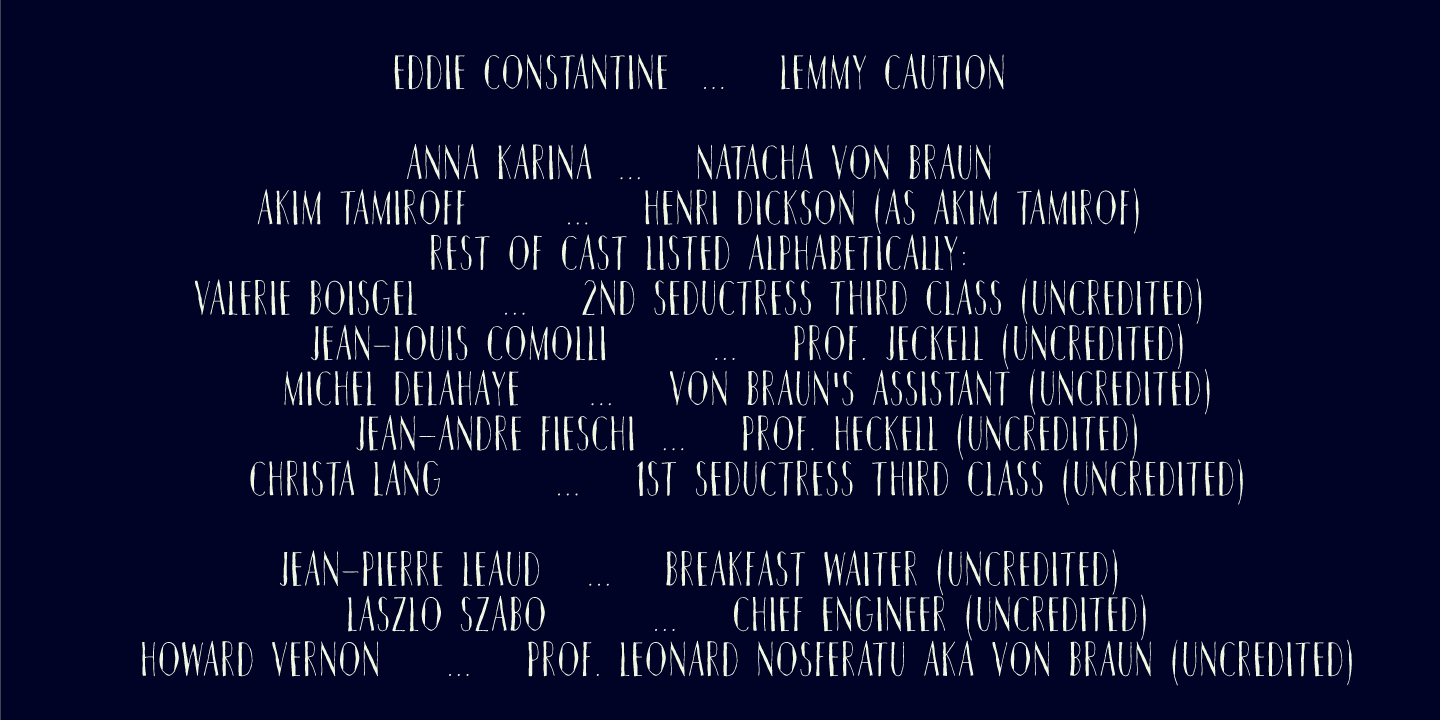 EDDIE CONSTANTINE ... LEMMY CAUTION
ANNA KARINA ... NATACHA VON BRAUN
AKIM TAMIROFF ... HENRI DICKSON (AS AKIM TAMIROF)
REST OF CAST LISTED ALPHABETICALLY:
VALERIE BOISGEL ... 2ND SEDUCTRESS THIRD CLASS (UNCREDITED)
JEAN-LOUIS COMOLLI ... PROF. JECKELL (UNCREDITED)
MICHEL DELAHAYE ... VON BRAUN'S ASSISTANT (UNCREDITED)
JEAN-ANDRE FIESCHI ... PROF. HECKELL (UNCREDITED)
CHRISTA LANG ... 1ST SEDUCTRESS THIRD CLASS (UNCREDITED)
JEAN-PIERRE LEAUD ... BREAKFAST WAITER (UNCREDITED)
LASZLO SZABO ... CHIEF ENGINEER (UNCREDITED)
HOWARD VERNON ... PROF. LEONARD NOSFERATU AKA VON BRAUN (UNCREDITED)